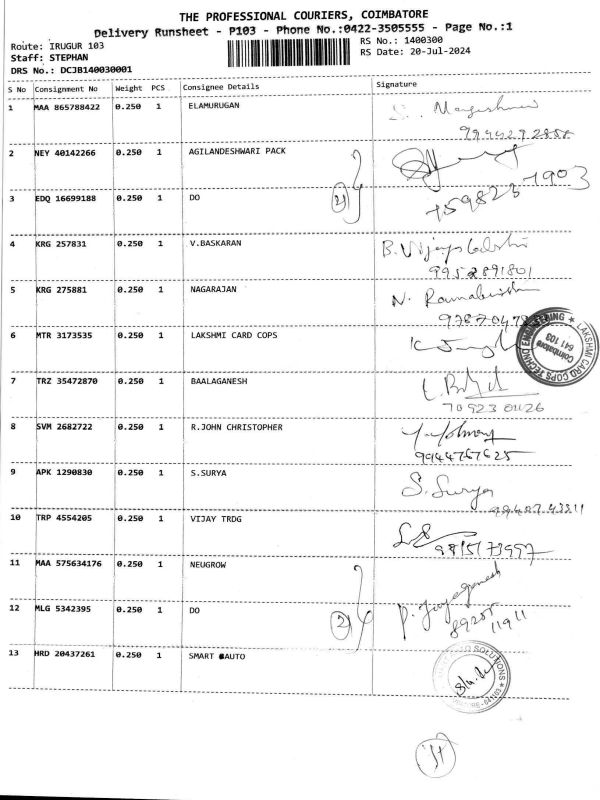 THE PROFESSIONAL COURIERS, COIMBATORE
Delivery Runsheet - P103 - Phone No.:0422-3505555 - Page No.:1
Route: IRUGUR 103
RS No.: 1400300
Staff: STEPHAN
RS Date: 20-Jul-2024
DRS No.: DCJB140030001
S No Consignment No Weight PCS Consignee Details Signature
1 MAA 865788422 0.250 1 ELAMURUGAN
2 NEY 40142266 0.250 1 AGILANDESHWARI PACK
3 EDQ 16699188 0.250 1 DO
4 KRG 257831 0.250 1 V.BASKARAN
9952891801
5 KRG 275881 0.250 1 NAGARAJAN
6 MTR 3173535 0.250 1 LAKSHMI CARD COPS
LAKSHMI CARD COPS TECHNO ENGINEERING
Coimbatore
641 103
7 TRZ 35472870 0.250 1 BAALAGANESH
70923 01126
8 SVM 2682722 0.250 1 R.JOHN CHRISTOPHER
9944767625
9 APK 1290830 0.250 1 S.SURYA
S. Surya
10 TRP 4554205 0.250 1 VIJAY TRDG
11 MAA 575634176 0.250 1 NEUGROW
12 MLG 5342395 0.250 1 DO
P. Jayaganesh
89205 11911
13 HRD 20437261 0.250 1 SMART AUTO
SOLUTIONS